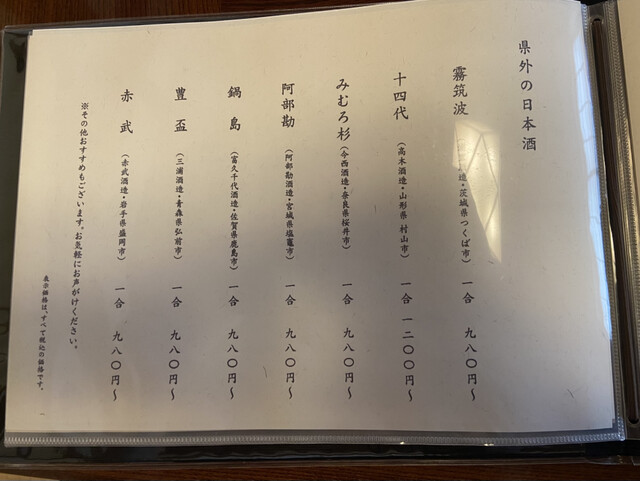 県外の日本酒
霧筑波 造・茨城県つくば市) 一合 九八〇円～
十四代 (高木酒造・山形県 村山市) 一合 一二〇〇円～
みむろ杉 (今西酒造・奈良県桜井市) 一合 九八〇円～
阿部勘 (阿部勘酒造・宮城県塩竈市) 一合 九八〇円～
鍋島 (富久千代酒造・佐賀県鹿島市) 一合 九八〇円～
豊盃 (三浦酒造・青森県弘前市) 一合 九八〇円～
赤武 (赤武酒造・岩手県盛岡市) 一合 九八〇円～
※その他おすすめもございます。お気軽にお声がけください。
表示価格は、すべて税込の価格です。